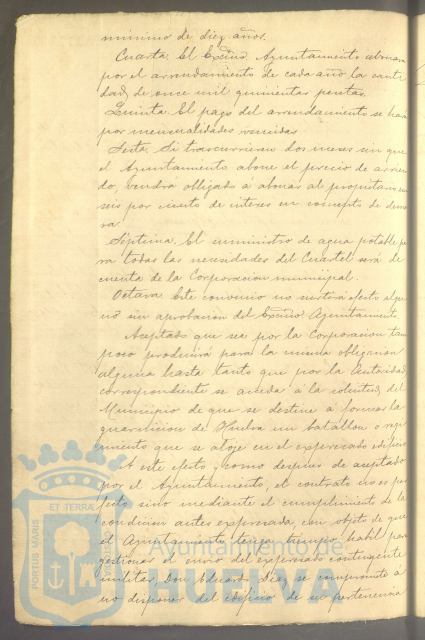 mínimo de diez años.
Cuarta. El Excmo. Ayuntamiento abonará
por el arrendamiento de cada año la canti
dad de once mil quinientas pesetas.
Quinta. El pago del arrendamiento se hará
por mensualidades vencidas.
Sexta. Si trascurriesen dos meses sin que
el Ayuntamiento abone el precio de arrien
do, vendrá obligado á abonar al propietario un
seis por ciento de interes en concepto de demo
ra.
Séptima. El suministro de agua potable pa
ra todas las necesidades del Cuartel será de
cuenta de la Corporacion municipal.
Octava. Este convenio no surtirá efecto algu
no sin aprobacion del Excmo. Ayuntamiento.
Aceptado que sea por la Corporacion tam
poco producirá para la misma obligacion
alguna hasta tanto que por la Autoridad
correspondiente se acceda á la solicitud del
Municipio de que se destine á formar la
guarnicion de Huelva un batallon o regi
miento que se aloje en el expresado edificio
A este efecto, como despues de aceptado
por el Ayuntamiento, el contrato no es per
fecto sino mediante el cumplimiento de la
condicion antes expresada, con objeto de que
el Ayuntamiento tenga tiempo habil para
gestionar el envio del expresado contingente
militar, Don Eduardo Diaz se compromete á
no disponer del edificio de su pertenencia
PORTUS MARIS ET TERRÆ CUSTODIA
Ayuntamiento de
HUELVA